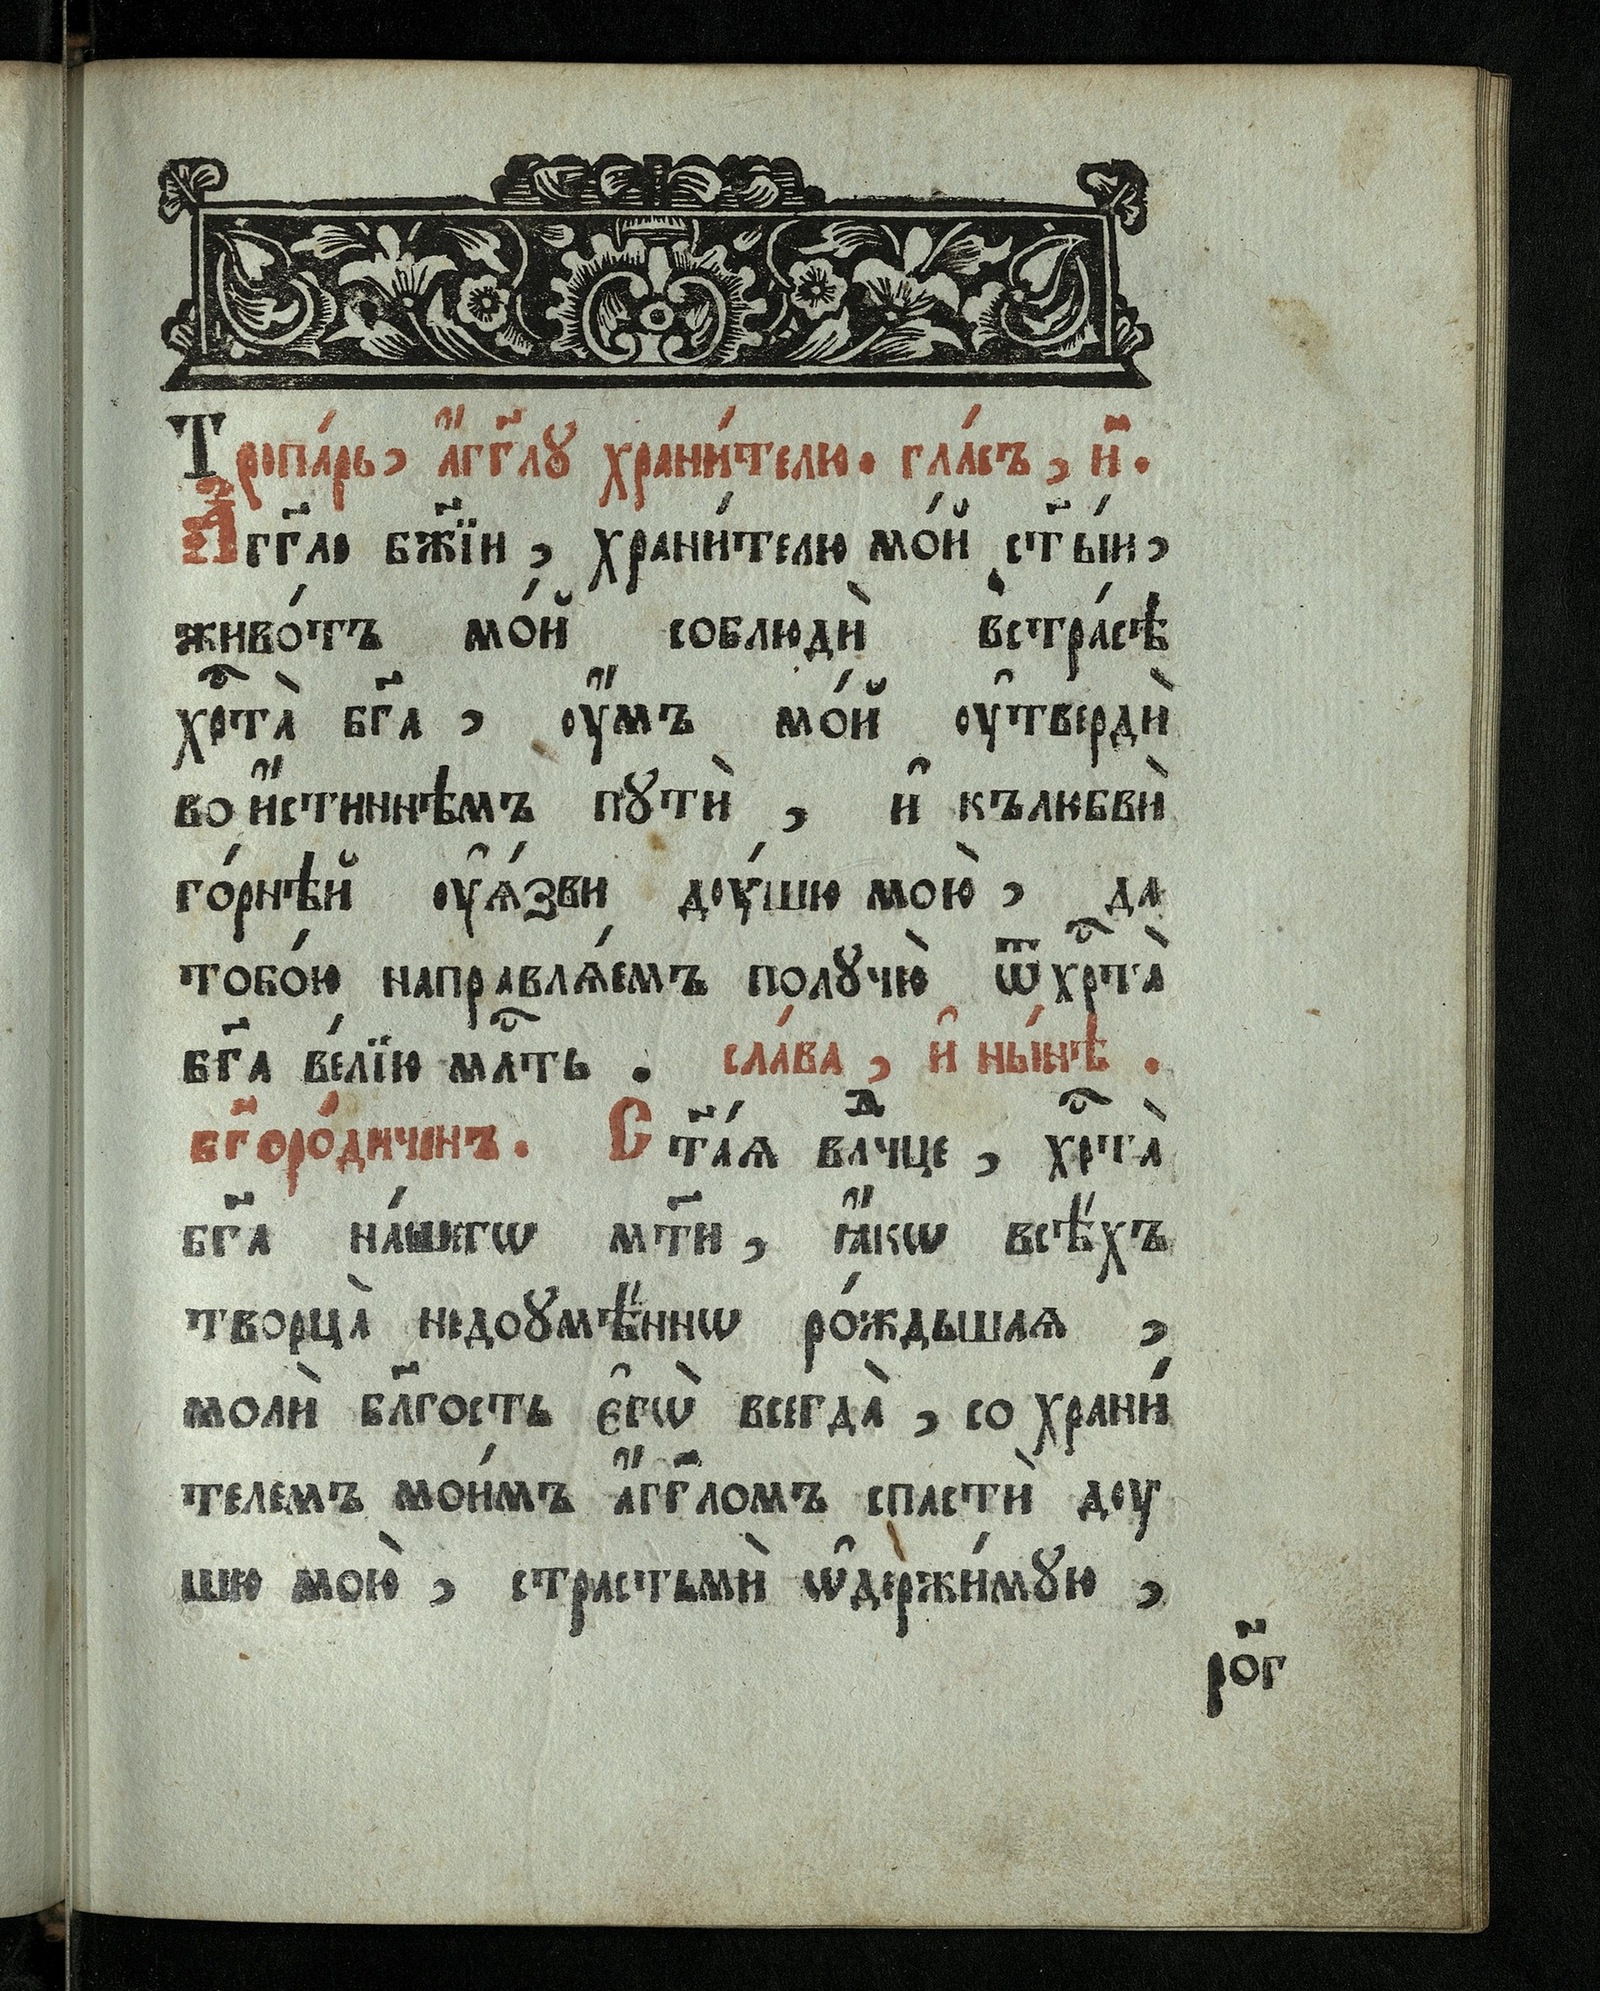 Тропа́рь, а҆́гг҃лꙋ храни́телю. гла́съ, и҃.
А҆гг҃лю бж҃їи, храни́телю мо́й ст҃ы́и,
живо́тъ мо́й соблюдѝ в̾стра́сѣ
хрⷭ҇та̀ бг҃а, оу҆́мъ мо́й оу҆твердѝ
во и҆́стиннѣмъ пꙋтѝ, и҆ кълюбвѝ
го́рнѣй оу҆ѧ́зви доу́шю мою̀, да
тобо́ю направлѧ́емъ полꙋчю̀ ѿхрⷭ҇та̀
бг҃а ве́лїю млⷭ҇ть. сла́ва, и҆ ны́нѣ.
бг҃оро́диченъ. Ст҃а́ѧ влⷣчце, хрⷭ҇та̀
бг҃а на́шегѡ мт҃и, ꙗ҆́кѡ всѣ́хъ
творца̀ недоꙋмѣ́ннѡ ро́ждьшаѧ,
молѝ бл҃гость є҆гѡ̀ всегда̀, со храни́
телемъ мои́мъ а҆́гг҃ломъ спастѝ доу
шю мою̀, страстьмѝ ѡ҆держи́мꙋю,
ро҃г